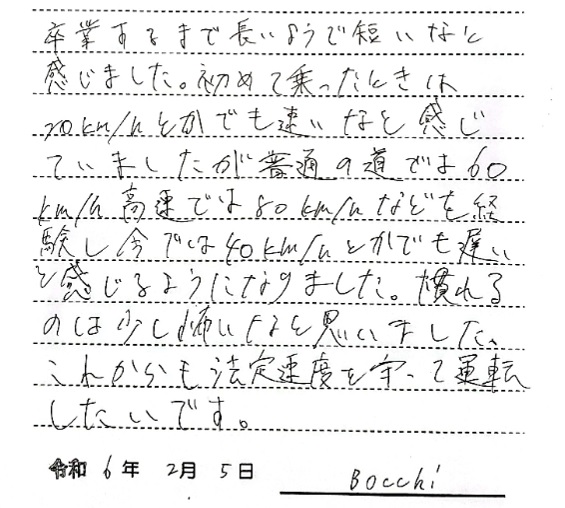 卒業するまで長いようで短いなと
感じました。初めて乗ったときは
20km/hとかでも速いなと感じ
ていましたが普通の道では60
km/h高速では80km/hなどを経
験し今では40km/hとかでも遅い
と感じるようになりました。慣れる
のは少し怖いなと思いました、
これからも法定速度を守って運転
したいです。
令和6年2月5日 Bocchi